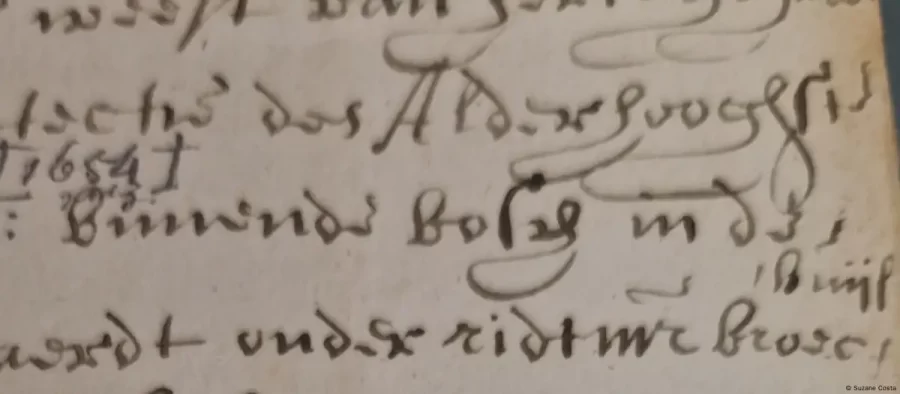 weest van
tectie des Alderhoochste
[1654]
: Binnende Bosch in de,
Buijs
werdt onder ridtmr Broec,
© Suzane Costa